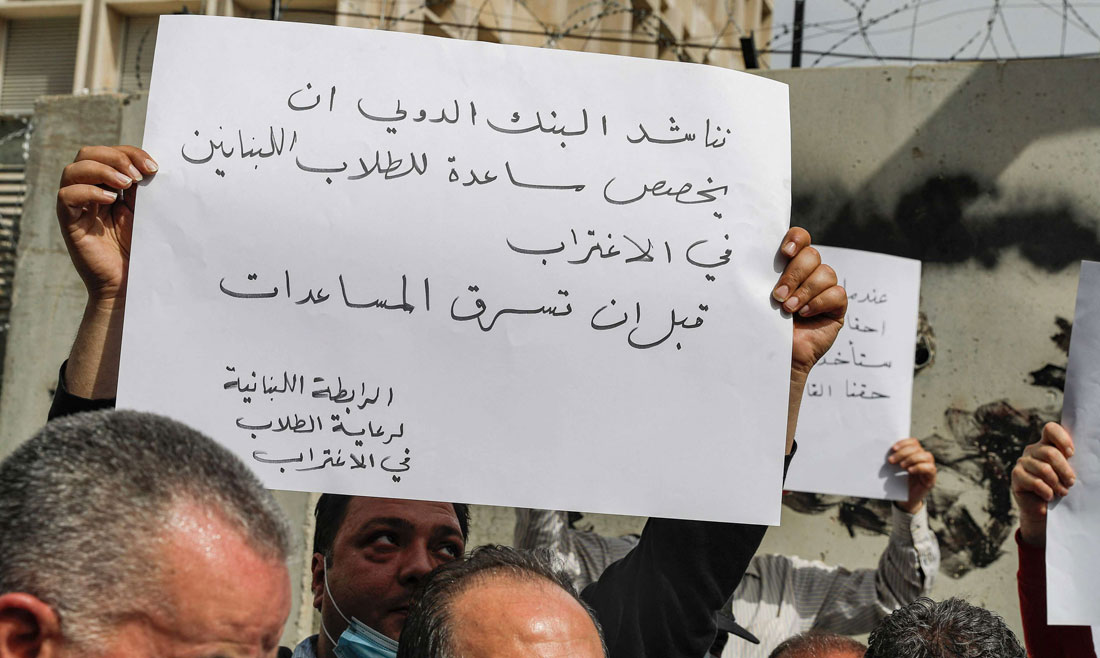 نناشد البنك الدولي ان
يخصص مساعدة للطلاب اللبنانين
في الاغتراب
قبل ان تسرق المساعدات
الرابطة اللبنانية
لرعاية الطلاب
في الاغتراب
عندما
ستأخذ
حقنا